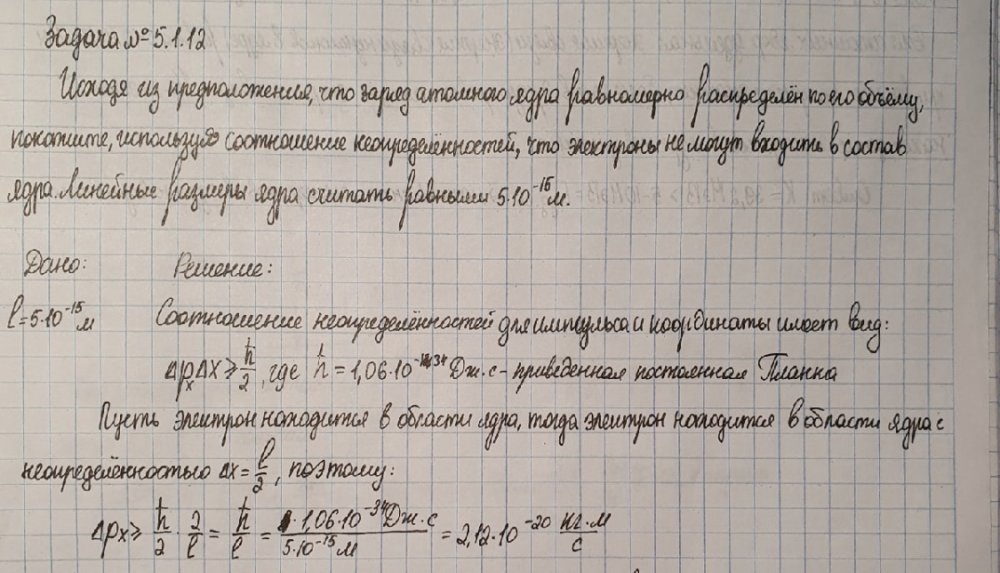 Задача № 5.1.12
Исходя из предположения, что заряд атомного ядра равномерно распределён по его объёму,
покажите, используя соотношение неопределённостей, что электроны не могут входить в состав
ядра. Линейные размеры ядра считать равными 5·10⁻¹⁵ м.
Дано: Решение:
l=5·10⁻¹⁵ м Соотношение неопределённостей для импульса и координаты имеет вид:
Δpₓ Δx ≥ ħ/2, где ħ = 1,06·10⁻³⁴ Дж·с - приведенная постоянная Планка
Пусть электрон находится в области ядра, тогда электрон находится в области ядра с
неопределённостью Δx = l/2, поэтому:
Δpx ≥ ħ/2 · 2/l = ħ/l = 1,06·10⁻³⁴ Дж·с / 5·10⁻¹⁵ м = 2,12·10⁻²⁰ кг·м/с